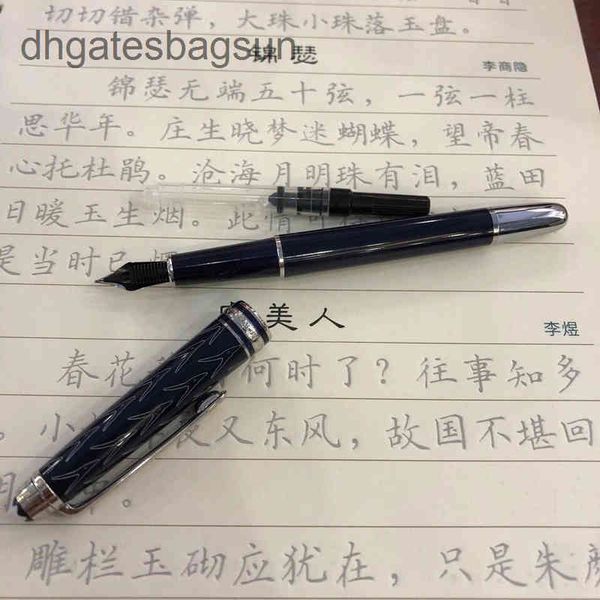 切切错杂弹，大珠小珠落玉盘。
dhgatesbagsun
锦瑟
李商隐
锦瑟无端五十弦，一弦一柱
思华年。庄生晓梦迷蝴蝶，望帝春
心托杜鹃。沧海月明珠有泪，蓝田
日暖玉生烟。此情可
是当时已
美人
李煜
春花 何时了？往事知多
。小 夜又东风，故国不堪回
月 中。
雕栏玉砌应犹在，只是朱颜